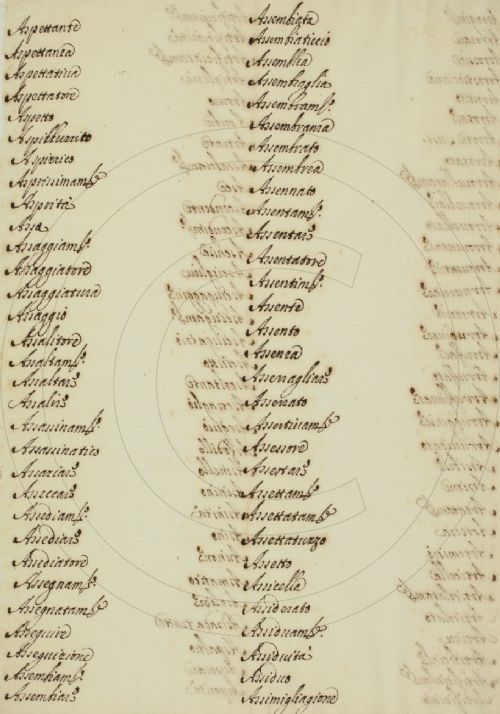 Aspettante
Aspettanza
Aspettativa
Aspettatore
Aspetto
Asprissimamte
Asprità
Assa
Assaggiamto
Assaggiatore
Assaggiatura
Assaggio
Assalitore
Assaltamto
Assaltare
Assalire
Assassinamto
Assassinatico
Assaziare
Asseccare
Assediamto
Assediare
Assediatore
Assegnamto
Assegnatamte
Asseguire
Asseguizione
Assembiamto
Assembiare
Assembiata
Assembiaticcio
Assemblea
Assembraglia
Assembramto
Assembranza
Assembrato
Assembrea
Assennato
Assentamto
Assentare
Assentatore
Assentimto
Assente
Assento
Assenza
Asserragliare
Asserrato
Assertivamte
Assessore
Assestare
Assettamto
Assettatamte
Assettatuzzo
Assetto
Assicella
Assiderato
Assiduamte
Assiduità
Assiduo
Assimigliagione